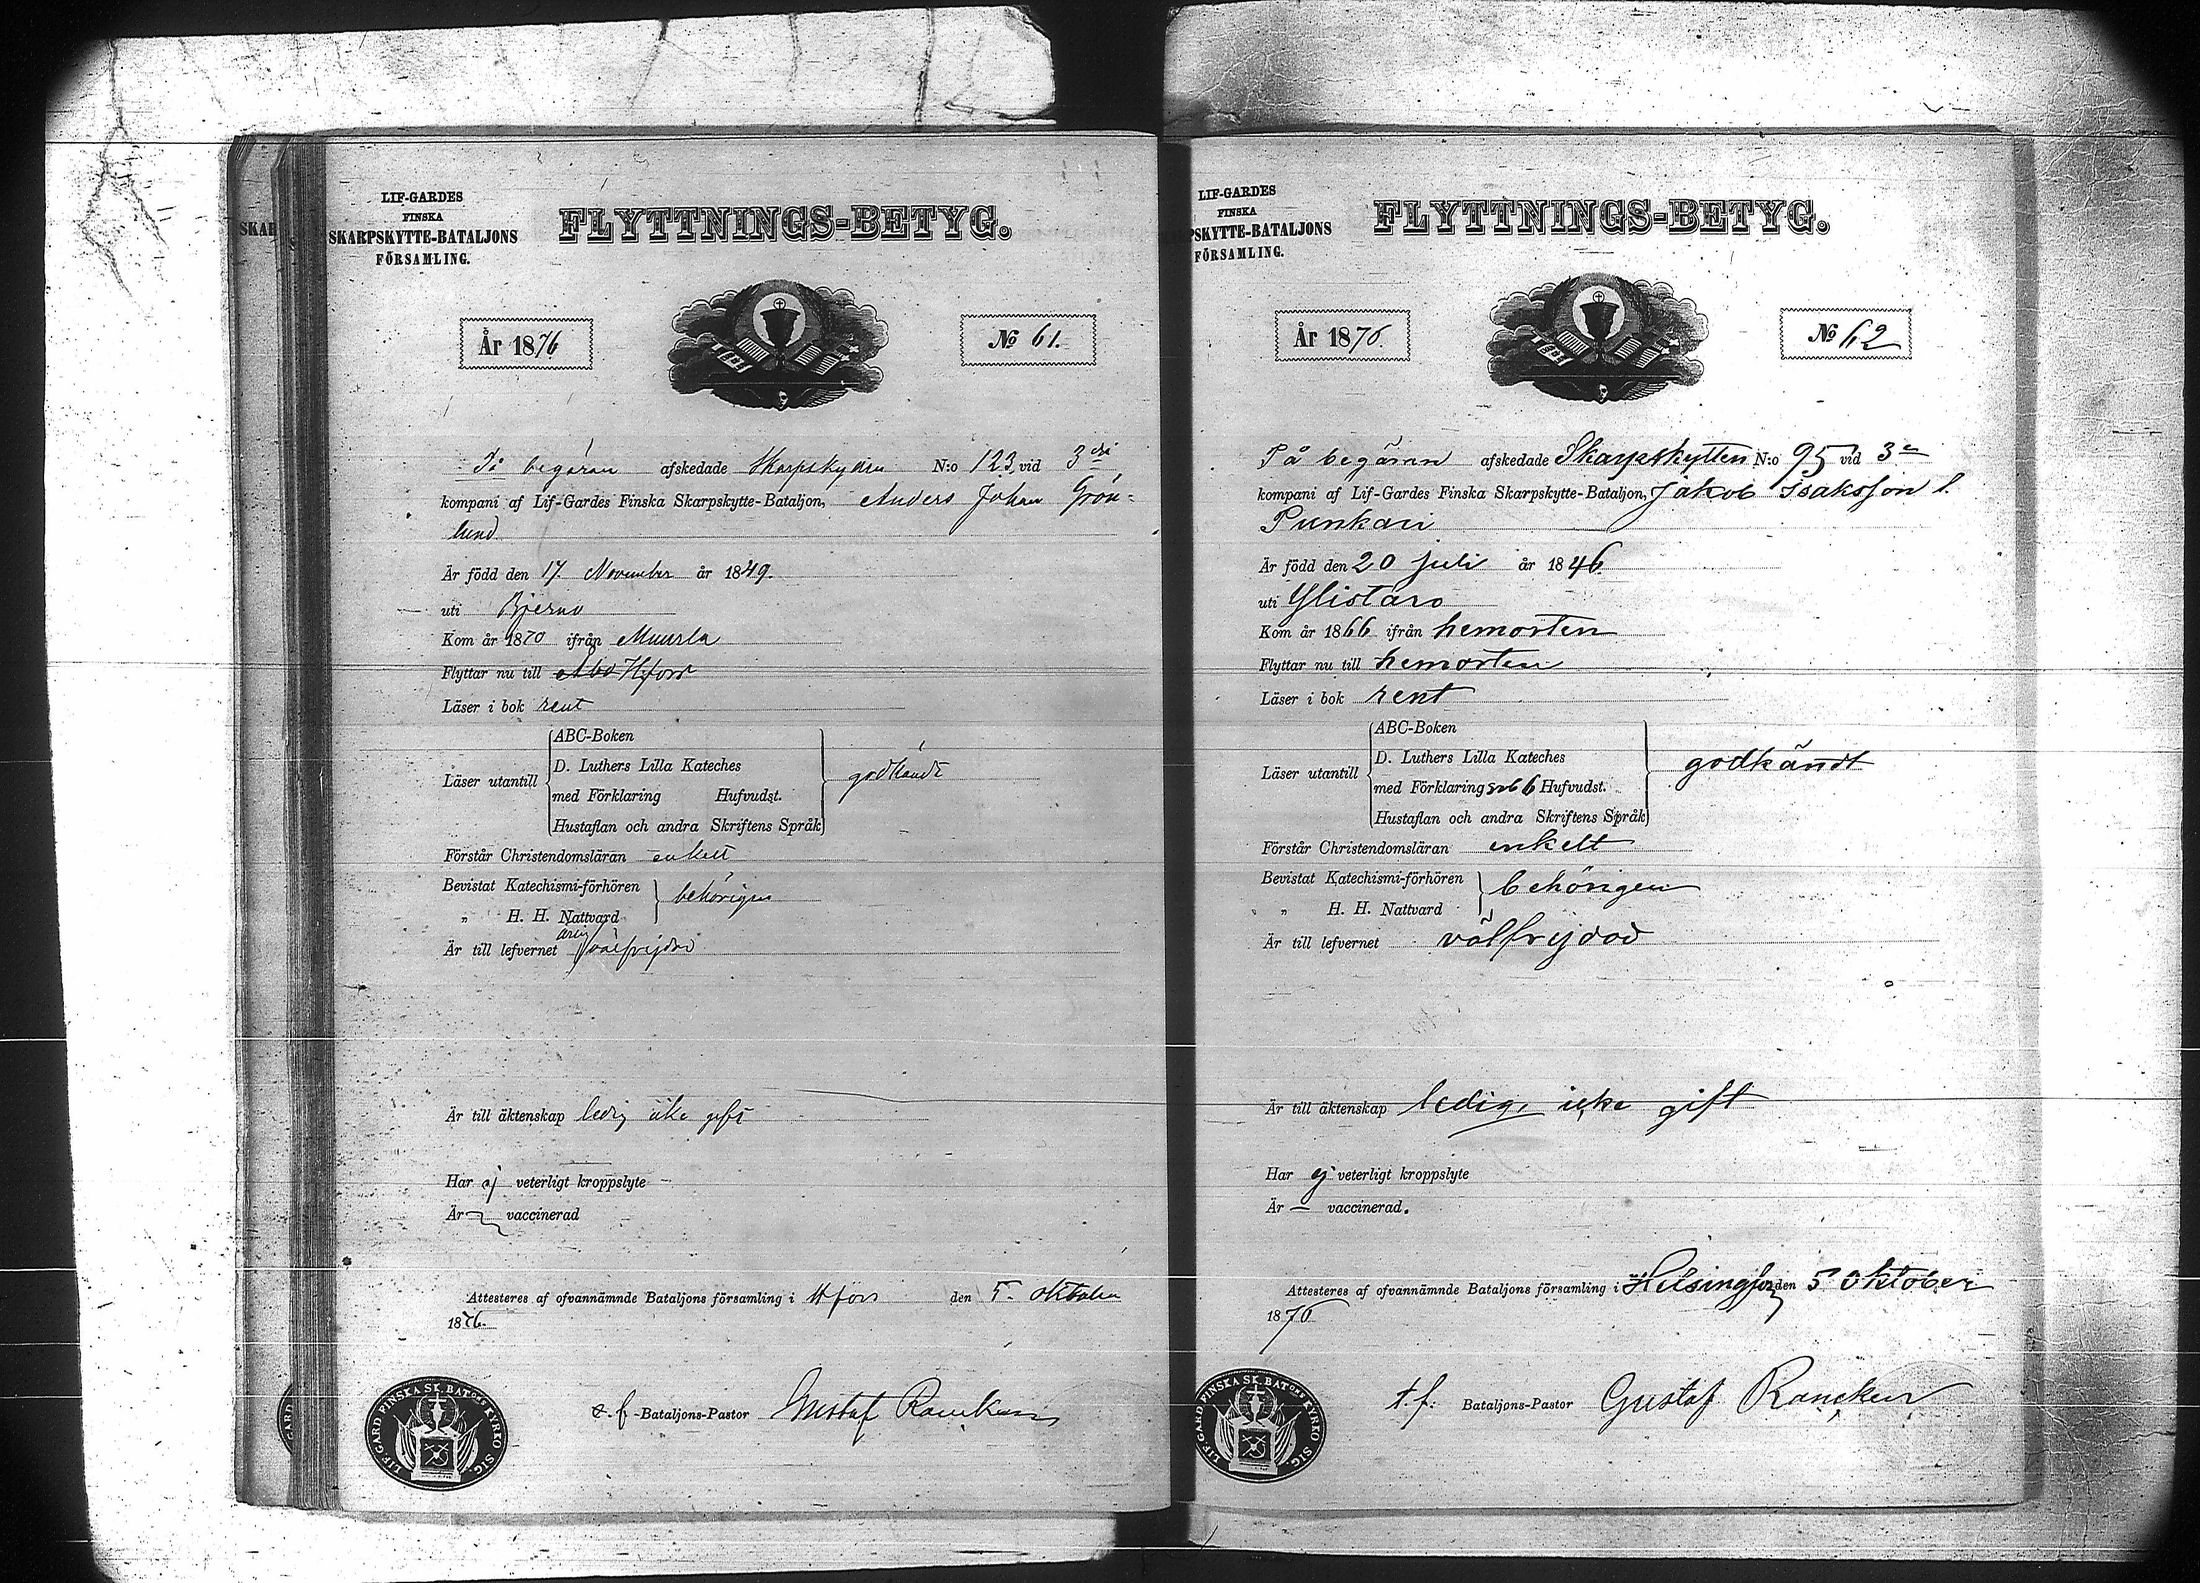 SKAR
LIF-GARDES
FINSKA
SKARPSKYTTE-BATALJONS
FÖRSAMLING.
FLYTTNINGS-BETYG.
År 1876
No 61.
På begäran afskedade Skarpskytten N:o 123 vid 3dje
kompani af Lif-Gardes Finska Skarpskytte-Bataljon, Anders Johan Grön-
lund
Är född den 17 November år 1849.
uti Bjerno
Kom år 1870 ifrån Muurla
Flyttar nu till Åbo Hfors
Läser i bok rent
Läser utantill
ABC-Boken
D. Luthers Lilla Kateches
med Förklaring Hufvudst.
Hustaflan och andra Skriftens Språk
godkändt
Förstår Christendomsläran enkelt
Bevistat Katechismi-förhören
„ H. H. Nattvard
behörigen
Är till lefvernet välfrejdad
Är till äktenskap ledig icke gift
Har ej veterligt kroppslyte
Är — vaccinerad
Attesteres af ofvannämnde Bataljons församling i Hfors den 5 Oktober
1876.
t. f. Bataljons-Pastor Gustaf Rancken
LIF. GARD. FINSKA SK. BATONS KYRKO SIG.
LIF-GARDES
FINSKA
PSKYTTE-BATALJONS
FÖRSAMLING.
FLYTTNINGS-BETYG.
År 1876.
No 62
På begäran afskedade Skarpskytten N:o 95 vid 3e
kompani af Lif-Gardes Finska Skarpskytte-Bataljon, Jakob Isaksson l.
Punkari
Är född den 20 juli år 1846
uti Ylistaro
Kom år 1866 ifrån hemorten
Flyttar nu till hemorten
Läser i bok rent
Läser utantill
ABC-Boken
D. Luthers Lilla Kateches
med Förklaring Hufvudst.
Hustaflan och andra Skriftens Språk
godkändt
Förstår Christendomsläran enkelt
Bevistat Katechismi-förhören
„ H. H. Nattvard
behörigen
Är till lefvernet välfrejdad
Är till äktenskap ledig, icke gift
Har ej veterligt kroppslyte
Är — vaccinerad.
Attesteres af ofvannämnde Bataljons församling i Helsingfors den 5 Oktober
1876
t. f. Bataljons-Pastor Gustaf Rancken
LIF. GARD. FINSKA SK. BATONS KYRKO SIG.